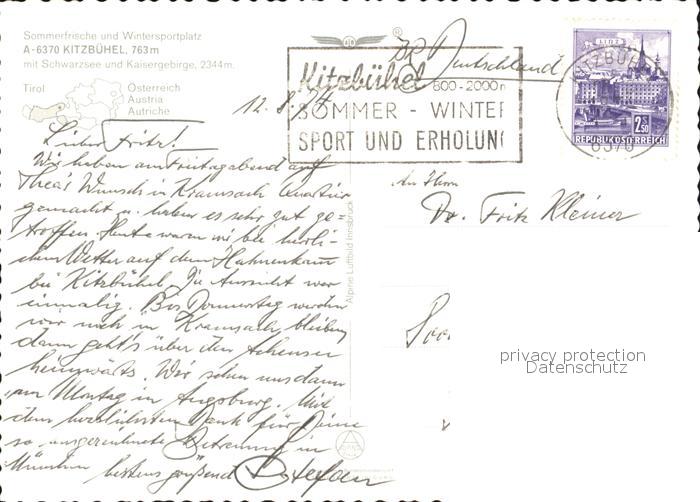 Sommerfrische und Wintersportplatz
A-6370 KITZBÜHEL, 763m
mit Schwarzsee und Kaisergebirge, 2344m.
Tirol
Österreich
Austria
Autriche
Kitzbühel 800-2000m
SOMMER - WINTER
SPORT UND ERHOLUN
LINZ
KITZBÜHEL
6370
2.50
REPUBLIK ÖSTERREICH
BR Deutschland
12. 8.
Lieber Fritz!
Wir haben am Freitagabend auf
Thea's Wunsch in Kramsach Quartier
gemacht u. haben es sehr gut ge-
troffen. Heute waren wir bei herrli-
chem Wetter auf dem Hahnenkamm
bei Kitzbühel. Die Aussicht war
einmalig. Bis Donnerstag werden
wir noch in Kramsach bleiben
dann geht's über den Achensee
heimwärts. Wir sehen uns dann
am Montag in Augsburg. Mit
dem herzlichsten Dank für Deine
so ausgezeichnete Betreuung in
München bestens grüßend Stefan
Alpine Luftbild Innsbruck
An Herrn
Dr. Fritz Kleiner
privacy protection
Datenschutz